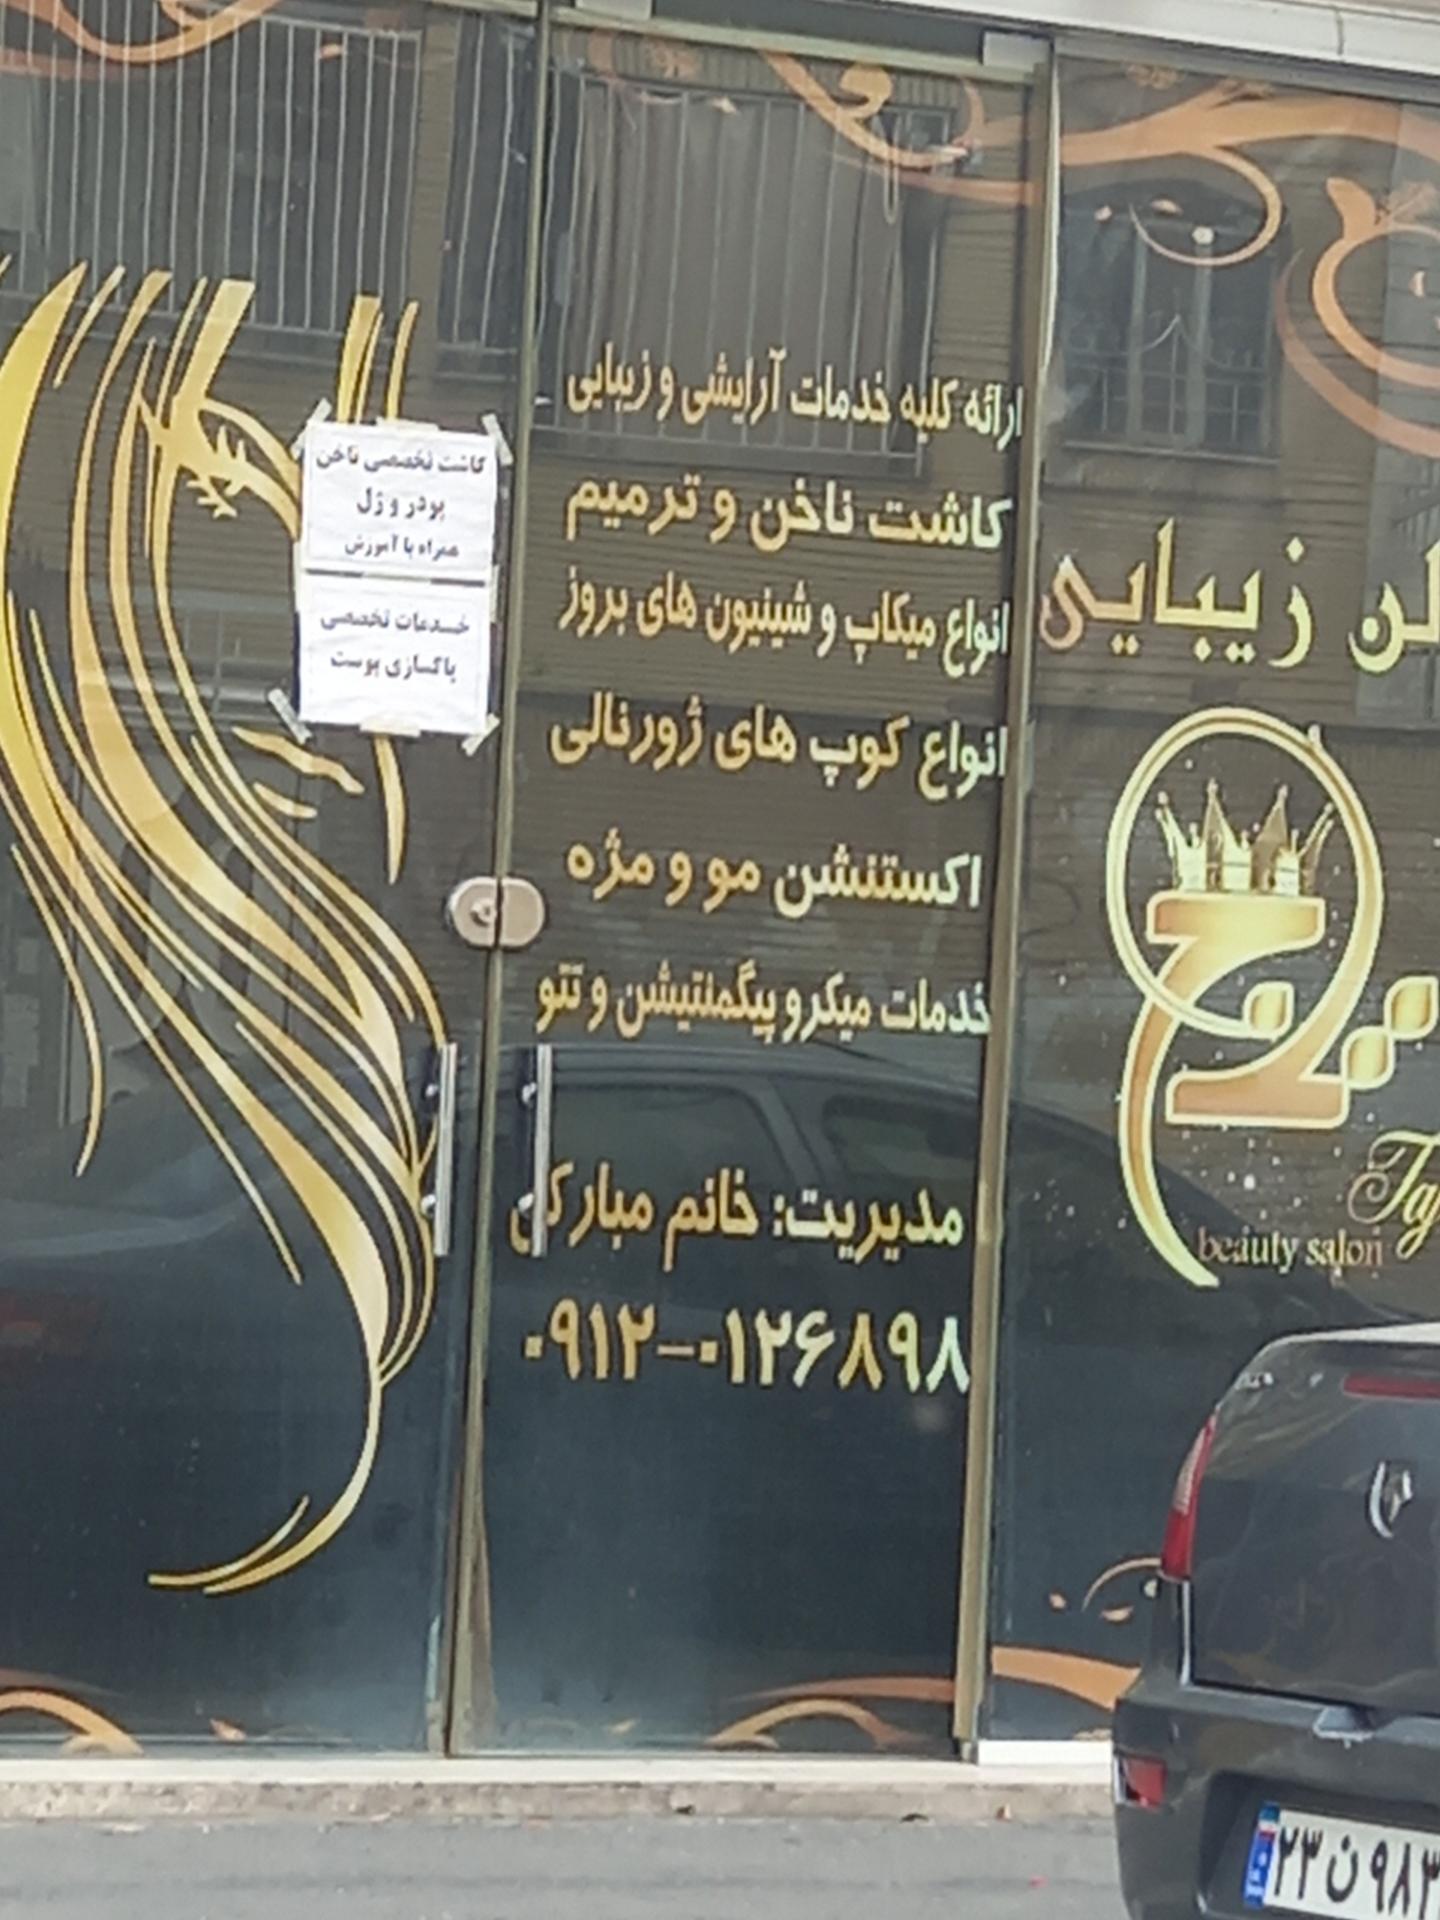 ارائه کلیه خدمات آرایشی و زیبایی
کاشت ناخن و ترمیم
انواع میکاپ و شینیون های بروز
انواع کوپ های ژورنالی
اکستنشن مو و مژه
خدمات میکرو پیگمنتیشن و تتو
مدیریت: خانم مبارکی
۰۹۱۲-۰۱۲۶۸۹۸
کاشت تخصصی ناخن
پودر و ژل
همراه با آموزش
خدمات تخصصی
پاکسازی پوست
لن زیبایی
Taj
beauty salon
۲۳ ن ۹۸۳